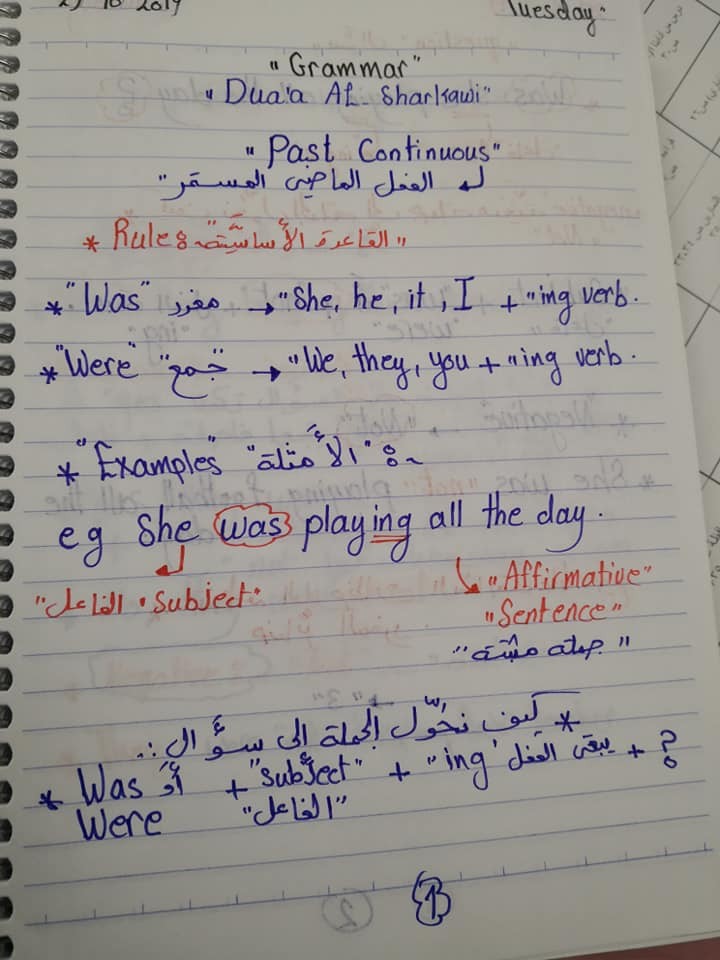 10 2019 Tuesday:
"Grammar"
"Dua'a AL-Sharkawi"
"Past Continuous"
الفعل الماضي المستمر"
* Rule: القاعدة الأساسيَّة"
* "Was" مفرد → "She, he, it, I + "ing verb.
* "Were" "جمع → "We, they, you + "ing verb.
* "Examples" "الأمثلة:
eg She was playing all the day.
"الفاعل . Subject" "Affirmative"
"Sentence"
"جملة مثبتة"
* كيف نحوّل الجملة إلى سؤال:
* Was أو + "subject" + "ing" يبقى الفعل + ?
Were "الفاعل"
1